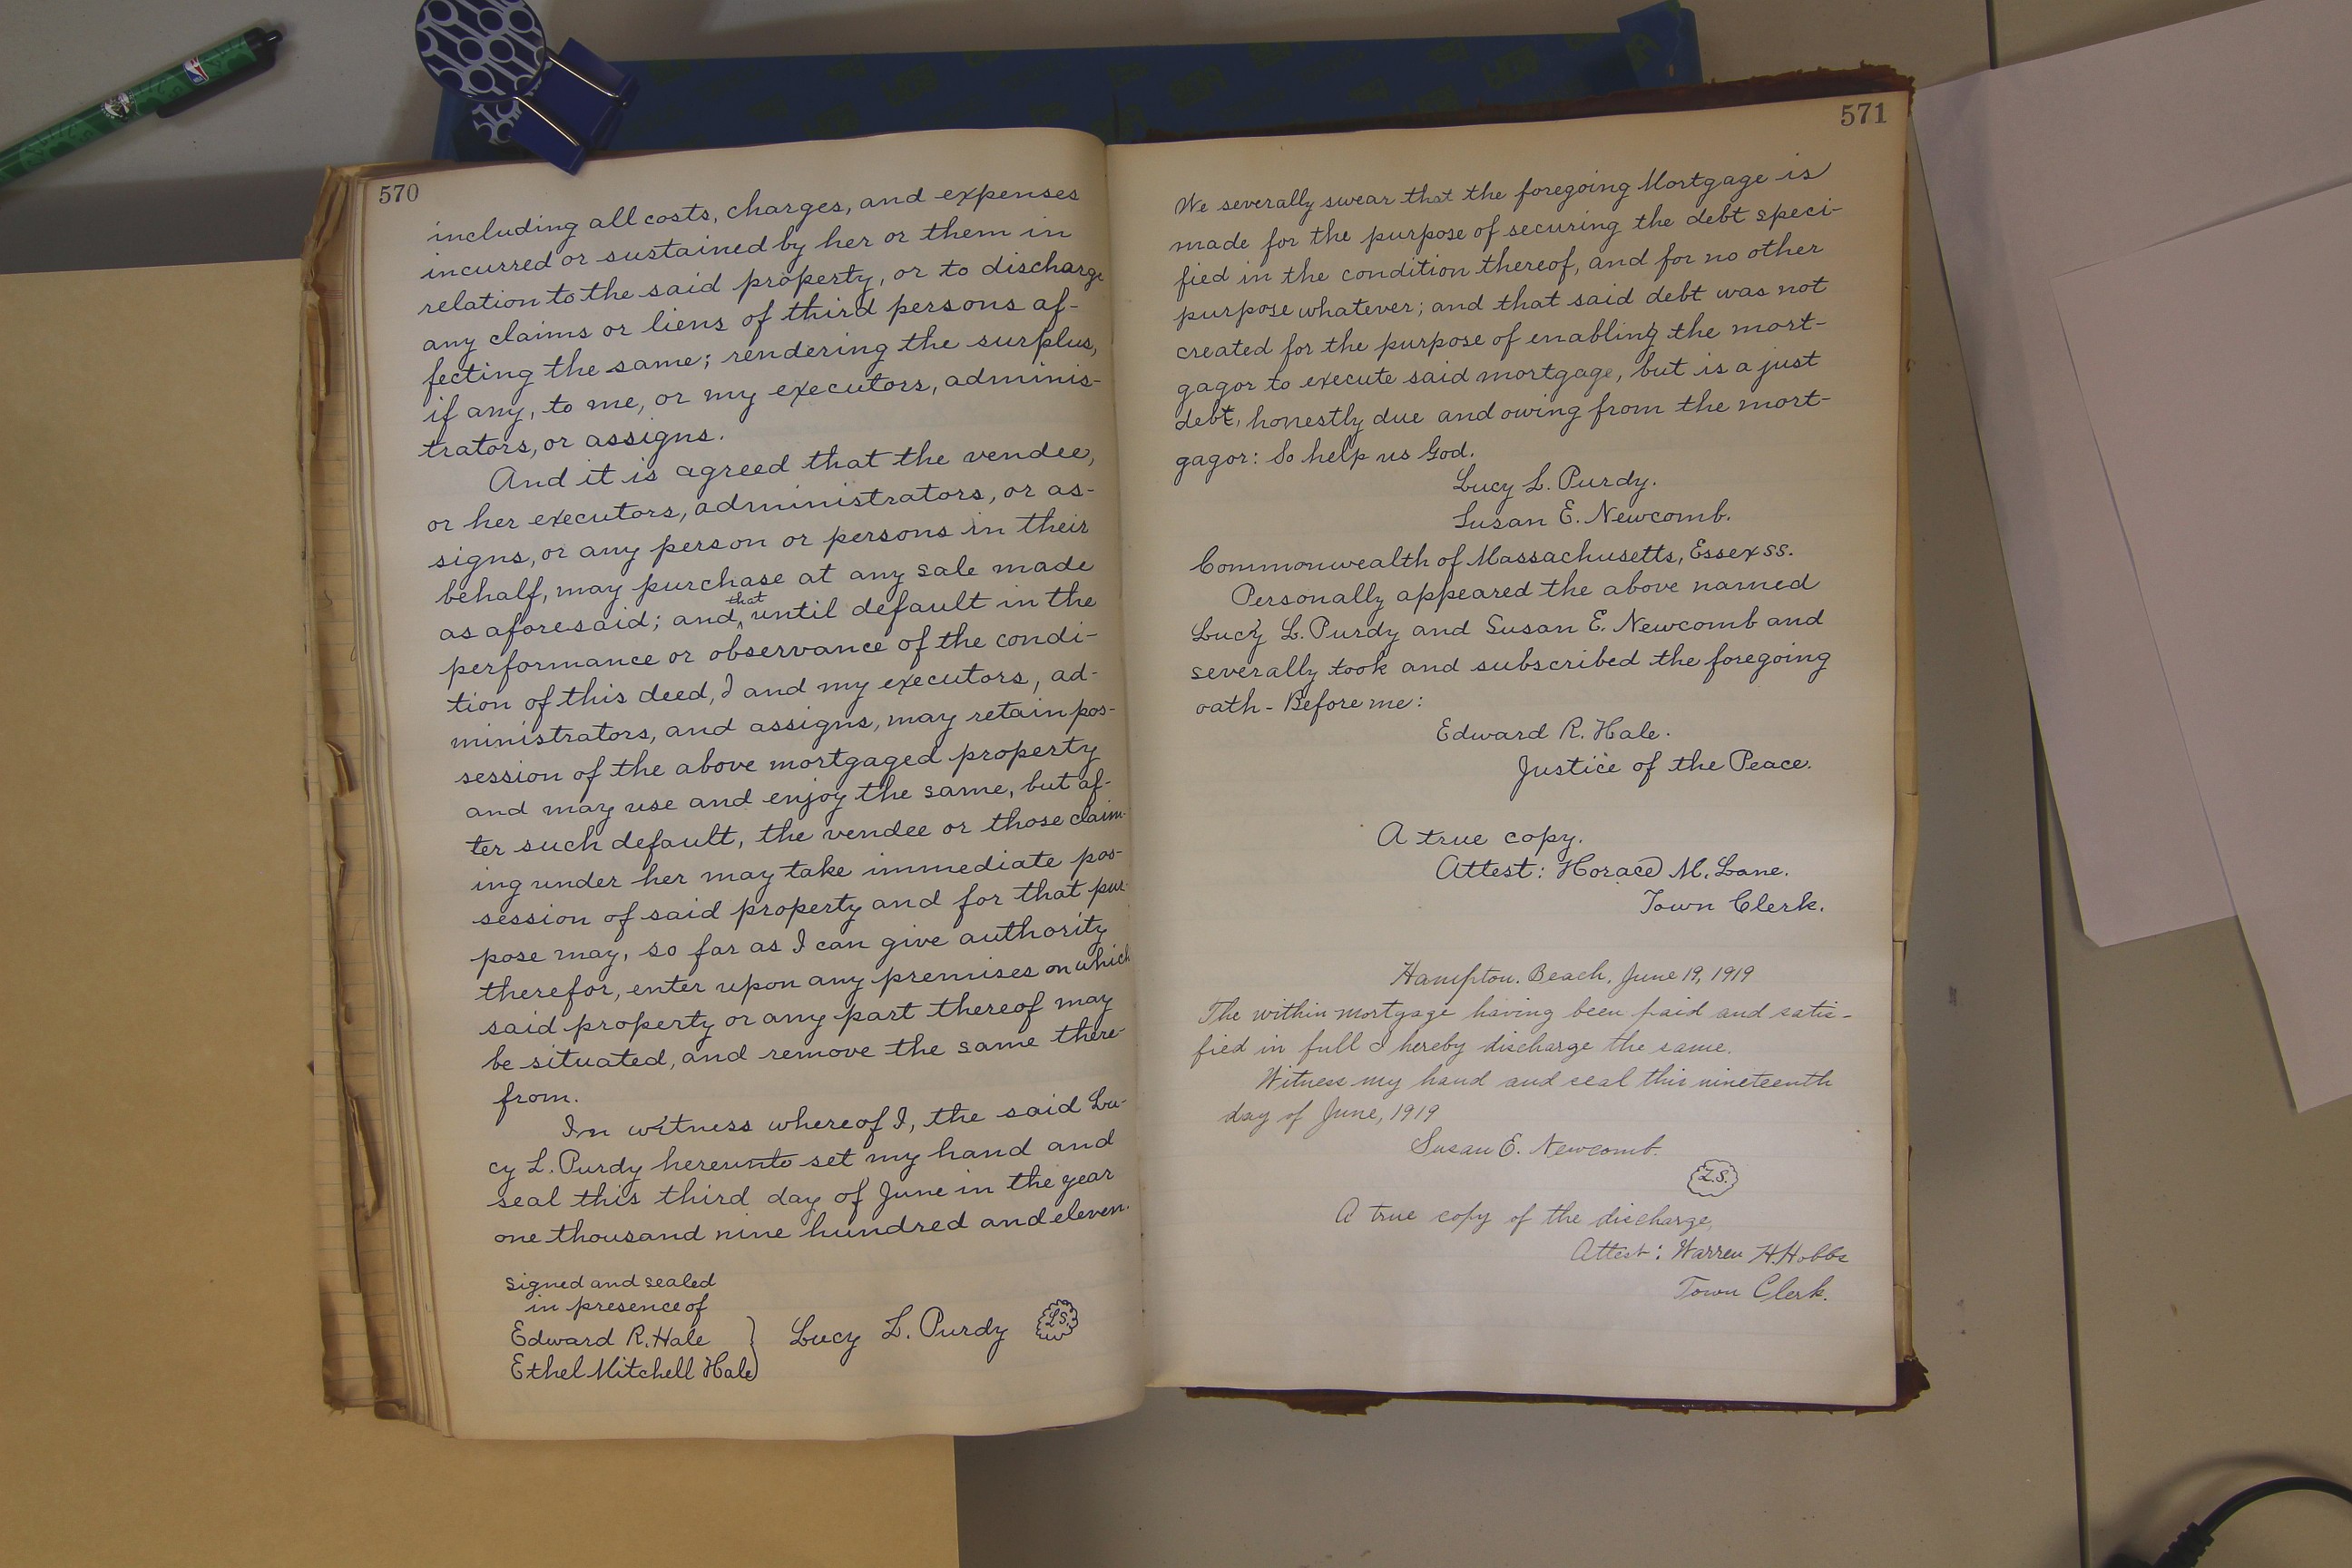 570
including all costs, charges, and expenses
incurred or sustained by her or them in
relation to the said property, or to discharge
any claims or liens of third persons af-
fecting the same; rendering the surplus,
if any, to me, or my executors, adminis-
trators, or assigns.
And it is agreed that the vendee,
or her executors, administrators, or as-
signs, or any person or persons in their
behalf, may purchase at any sale made
as aforesaid; and that until default in the
performance or observance of the condi-
tion of this deed, I and my executors, ad-
ministrators, and assigns, may retain pos-
session of the above mortgaged property
and may use and enjoy the same, but af-
ter such default, the vendee or those claim-
ing under her may take immediate pos-
session of said property and for that pur-
pose may, so far as I can give authority
therefor, enter upon any premises on which
said property or any part thereof may
be situated, and remove the same there-
from.
In witness whereof I, the said Lu-
cy L. Purdy hereunto set my hand and
seal this third day of June in the year
one thousand nine hundred and eleven.
signed and sealed
in presence of
Edward R. Hale
Ethel Mitchell Hale
Lucy L. Purdy L.S.
571
We severally swear that the foregoing Mortgage is
made for the purpose of securing the debt speci-
fied in the condition thereof, and for no other
purpose whatever; and that said debt was not
created for the purpose of enabling the mort-
gagor to execute said mortgage, but is a just
debt, honestly due and owing from the mort-
gagor: So help us God.
Lucy L. Purdy.
Susan E. Newcomb.
Commonwealth of Massachusetts, Essex ss.
Personally appeared the above named
Lucy L. Purdy and Susan E. Newcomb and
severally took and subscribed the foregoing
oath - Before me:
Edward R. Hale.
Justice of the Peace.
A true copy.
Attest: Horace M. Lane.
Town Clerk.
Hampton. Beach, June 19, 1919
The within mortgage having been paid and satis-
fied in full I hereby discharge the same.
Witness my hand and seal this nineteenth
day of June, 1919
Susan E. Newcomb.
L.S.
A true copy of the discharge,
Attest: Warren H. Hobbs
Town Clerk.